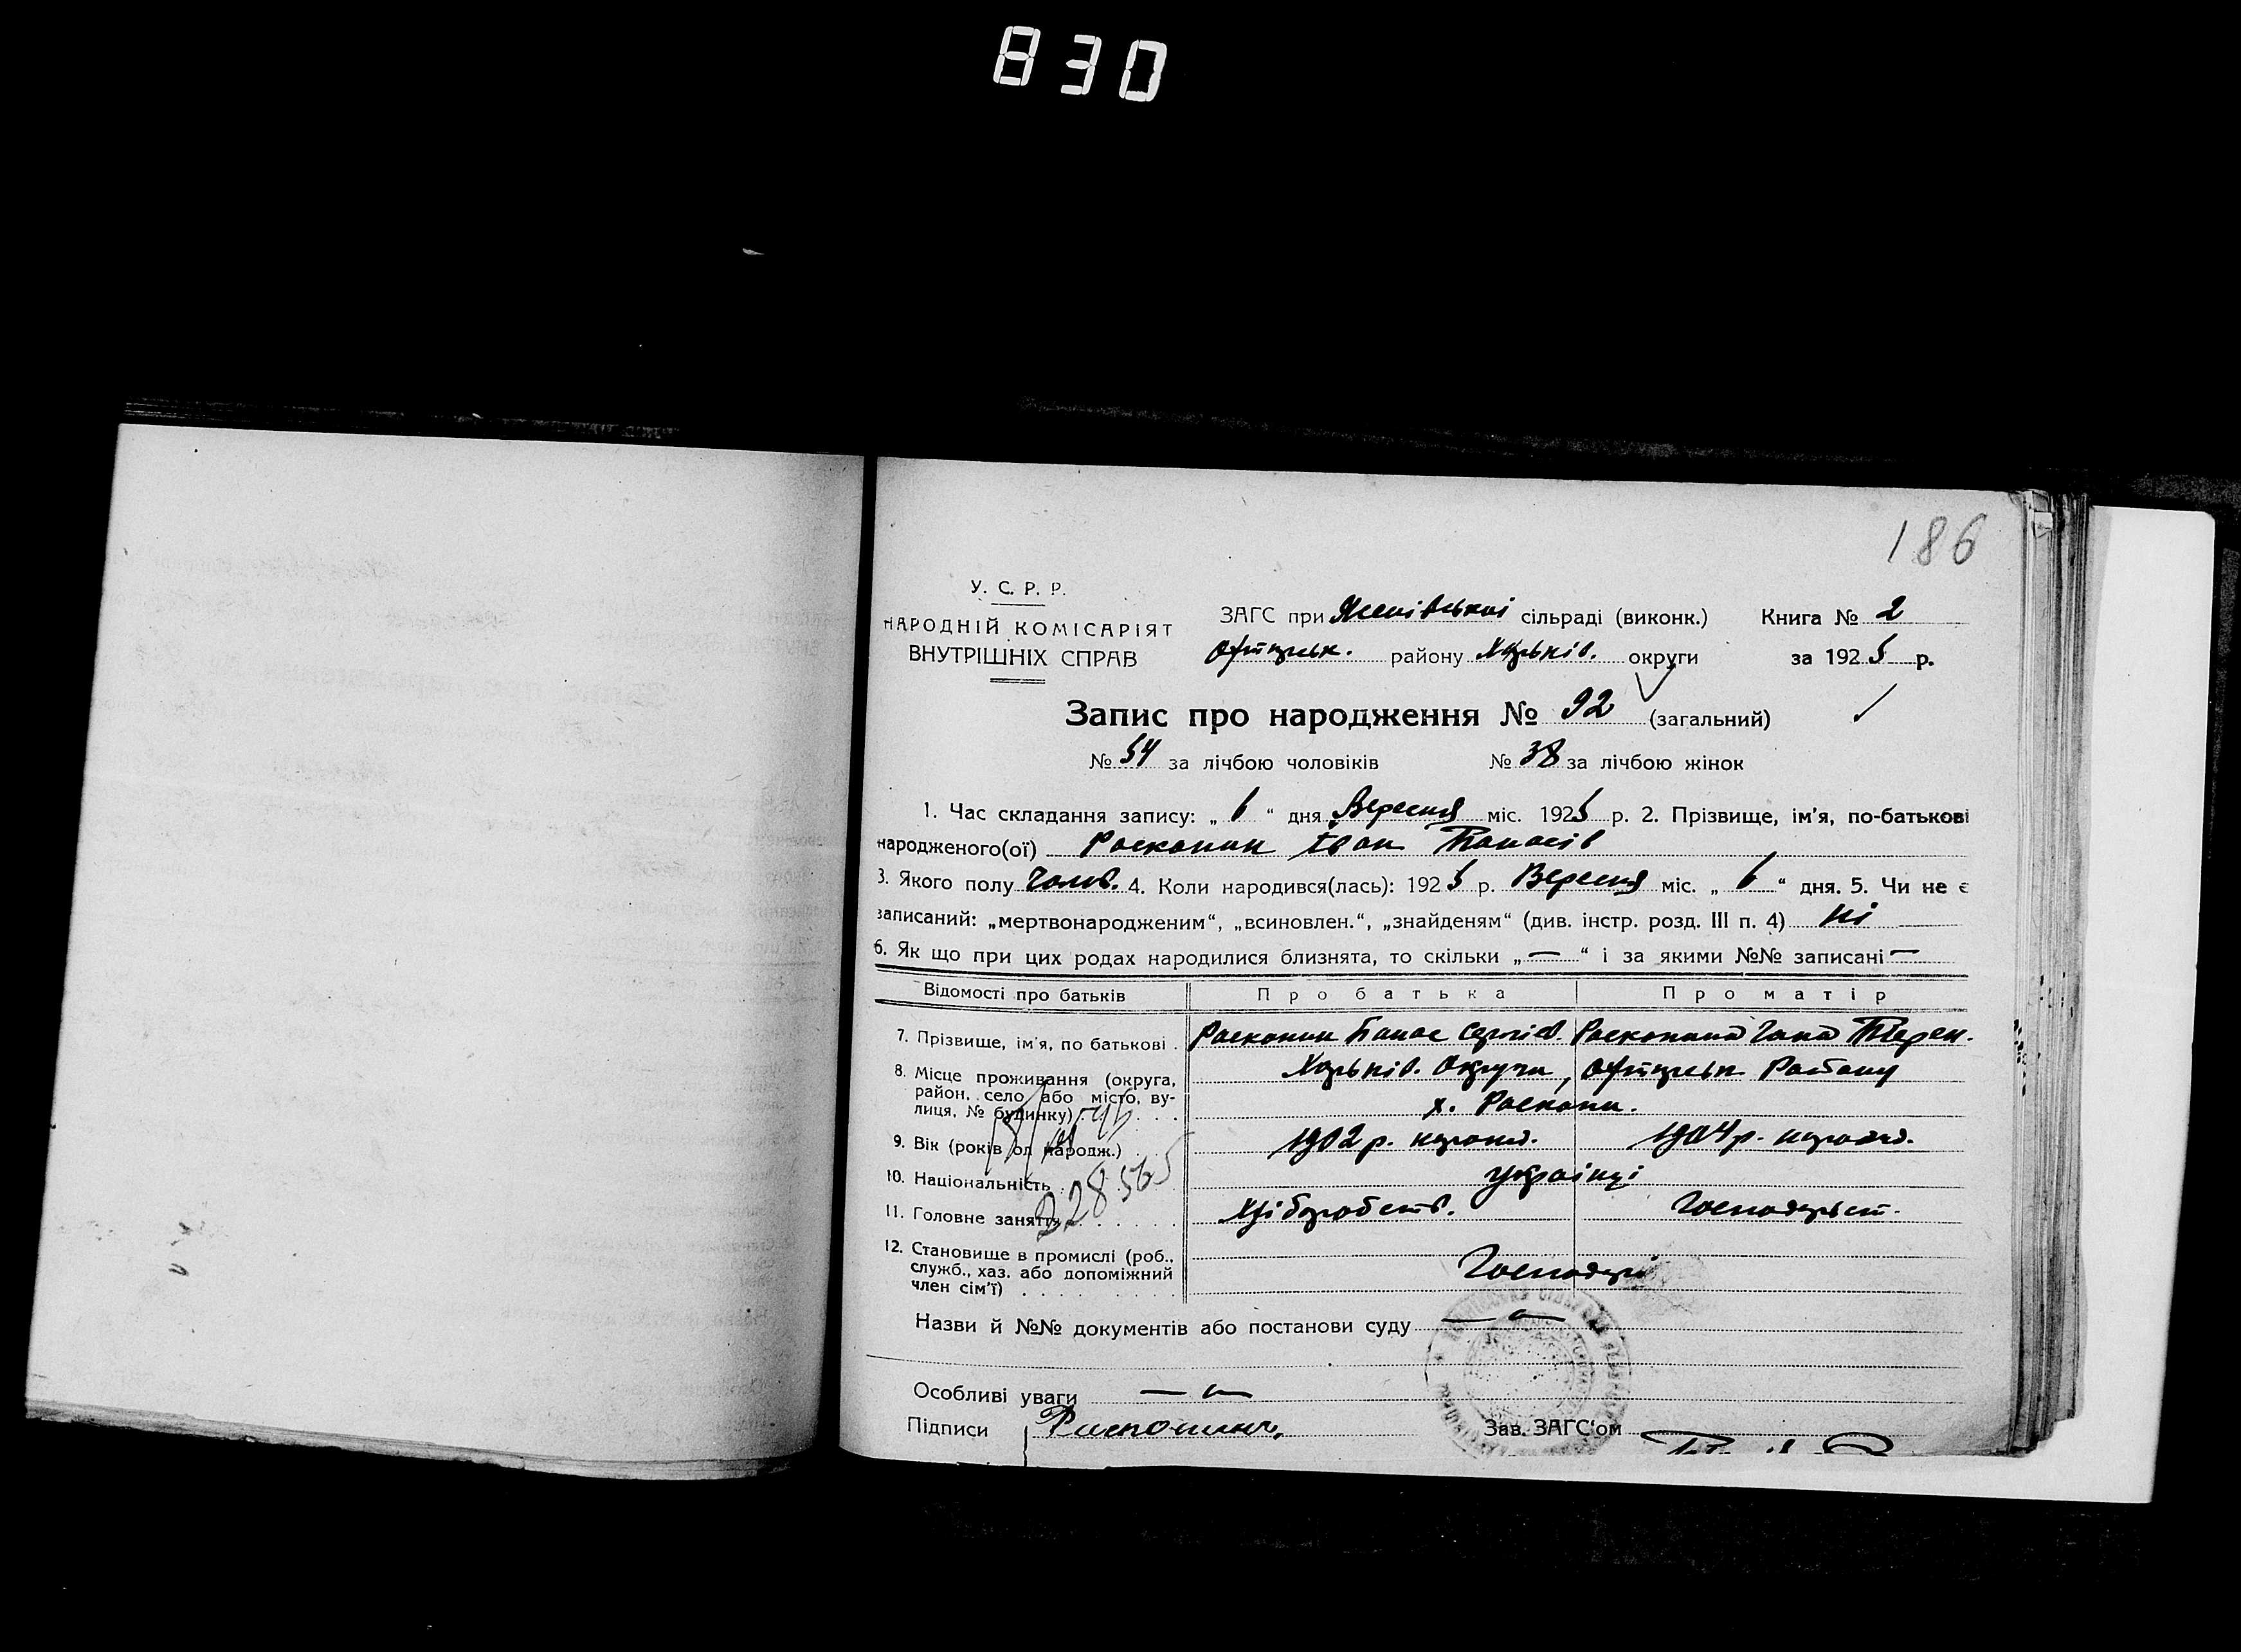 830
186
У. С. Р. Р.
НАРОДНІЙ КОМІСАРІЯТ
ВНУТРІШНІХ СПРАВ
ЗАГС при сільраді (виконк.) Книга № 2
району Харьків. округи за 1925 р.
Запис про народження № 92 (загальний)
№ 54 за лічбою чоловіків № 38 за лічбою жінок
1. Час складання запису: „ 6 “ дня Вересня міс. 1925 р. 2. Прізвище, ім'я, по-батькові
народженого(ої) Расканин Іван Панасів
3. Якого полу Чолов. 4. Коли народився(лась): 1925 р. Вересня міс. „ 6 “ дня. 5. Чи не є
записаний: „мертвонародженим“, „всиновлен.“, „знайденям“ (див. інстр. розд. III п. 4) ні
6. Як що при цих родах народилися близнята, то скільки „ — “ і за якими №№ записані —
Відомості про батьків Про батька Про матір
7. Прізвище, ім'я, по батькові . Расканин Панас Сергіев. Расканина Гана Терен.
8. Місце проживання (округа,
район, село або місто, вулиця, № будинку) Харьків. Округи, Району
х.
9. Вік (років од народж.) 1902 р. народ. 1904 р. народ.
10. Національність Українці
11. Головне заняття Хліборобств. Господарст.
228565
12. Становище в промислі (роб.,
служб., хаз. або допоміжний
член сім'ї) Господарі
Назви й №№ документів або постанови суду — „ —
Особливі уваги — „ —
Підписи Зав. ЗАГС'ом